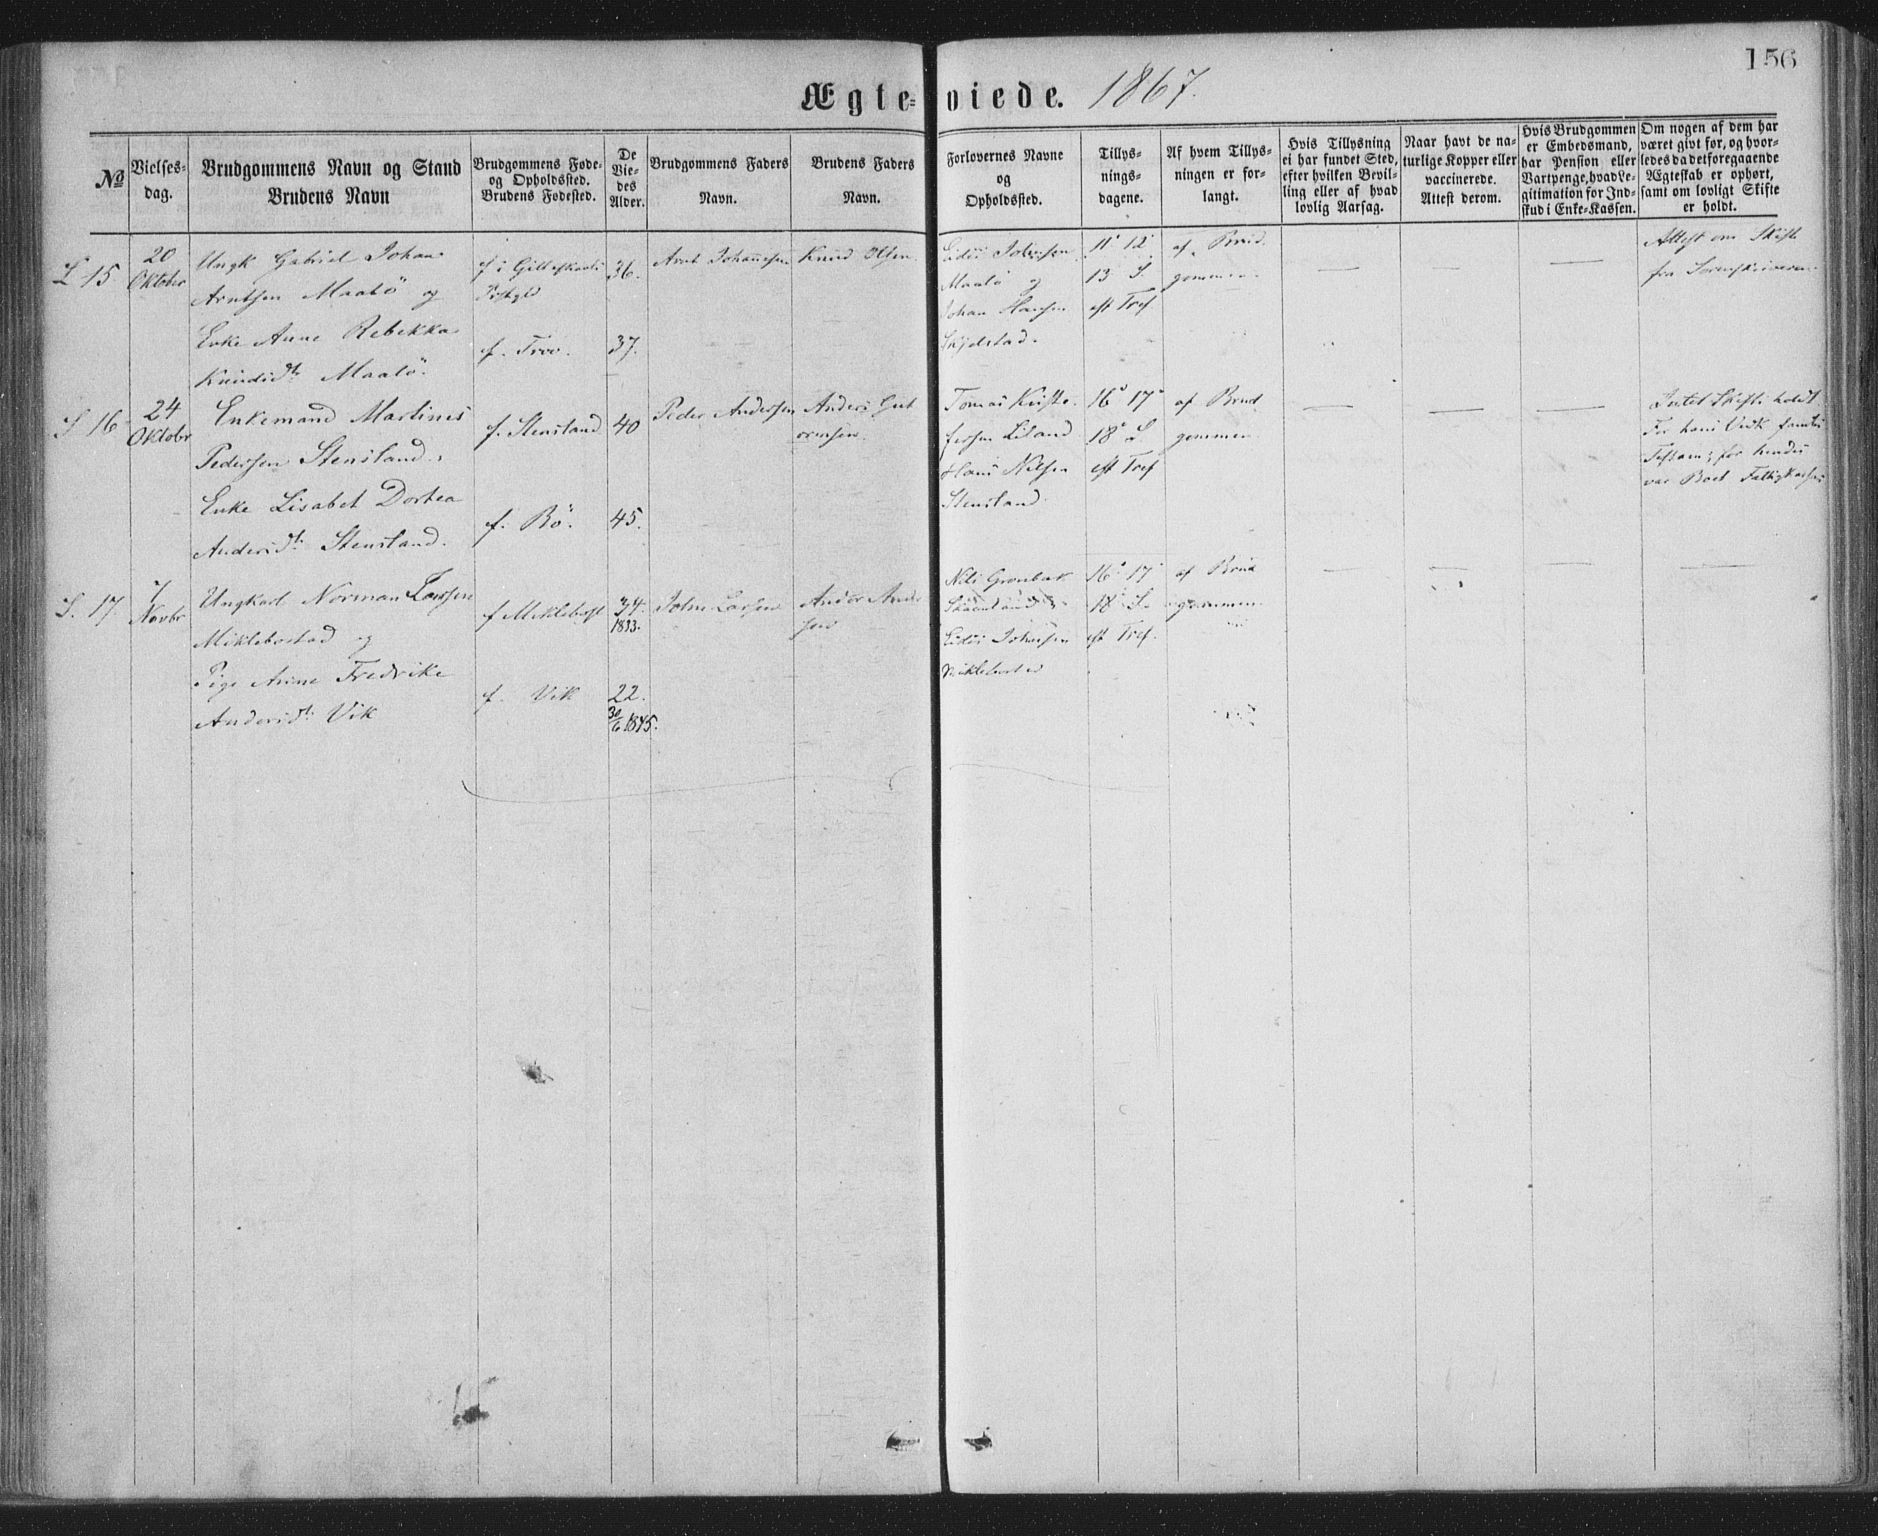 156
Ægteviede. 1867.
No
Vielses-
dag.
Brudgommens Navn og Stand
Brudens Navn
Brudgommens Føde-
og Opholdssted.
Brudens Fødested.
De
Vie-
des
Alder.
Brudgommens Faders
Navn.
Brudens Faders
Navn.
Forlovernes Navne
og
Opholdssted.
Tillys-
nings-
dagene.
Af hvem Tillys-
ningen er for-
langt.
Hvis Tillysning
ei har fundet Sted,
efter hvilken Bevil-
ling eller af hvad
lovlig Aarsag.
Naar havt de na-
turlige Kopper eller
vaccinerede.
Attest derom.
Hvis Brudgommen
er Embedsmand,
har Pension eller
Vartpenge, hvad Le-
gitimation for Ind-
skud i Enke-Kassen.
Om nogen af dem har
været givt før, og hvor-
ledes da det foregaaende
Ægteskab er ophørt,
samt om lovligt Skifte
er holdt.
15
20
Oktober
Ungk Gabriel Johan
Arntsen Maalö og
Enke Anne Rebekka
Knudsdt. Maalö.
f. i Gilleskaals
f. Troo.
36.
37.
Arnt Johannesen
Knud Olsen
Maalö og
Johan Hansen
11' 12'
13 S.
eft Tref
af Brud
gommen
Attest om Skifte
fra Sorenskriveren
S 16
24
Oktobr
Enkemand Martines
Pedersen Stensland.
Enke Lisabet Dortea
Andersdt. Stensland.
f. Stensland
f. Bö.
40
45.
Peder Andersen
Anders Gut
ormsen.
Tomas Kriste
fersen Leland
Hans Nilsen
Stensland
16' 17'
18' S.
eft Tref
af Brud
gommen.
Intet Skifte holdt
For hans Vedk
for hendes
var Boet
S. 17
7
Novbr
Ungkarl Norman Larsen
Miklebostad og
Pige Anne Fredrike
Andersdt. Vik
f Miklebost
f. Vik
34.
1833.
22.
30/6 1845.
John Larsen
Anders Ander
sen
Nils Grönbæk
Skaanland
Miklebostad
16' 17'
18' S.
eft Tref.
af Brud
gommen